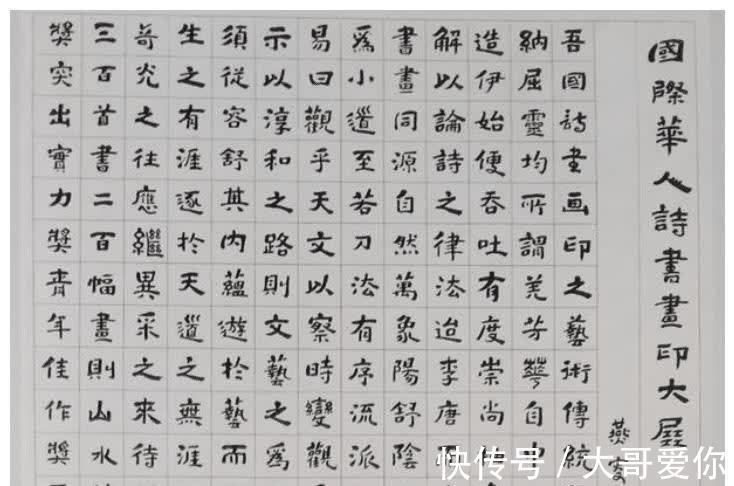 國際華人詩書畫印大展
燕
吾國詩書画印之藝術傳統
納屈靈均所謂羌芳華自中
造伊始便吞吐有度崇尚
解以論詩之律法迨李唐
書畫同源自然萬象陽舒陰
為小道至若刀法有序流派
易曰觀乎天文以察時變觀
示以淳和之路則文藝之為
須從容舒其内蘊遊於藝而
生之有涯逐於天道之無涯
奇光之往應繼異采之來待
三百首書二百幅畫則山水
獎突出實力獎青年佳作獎
快传号/大哥爱你